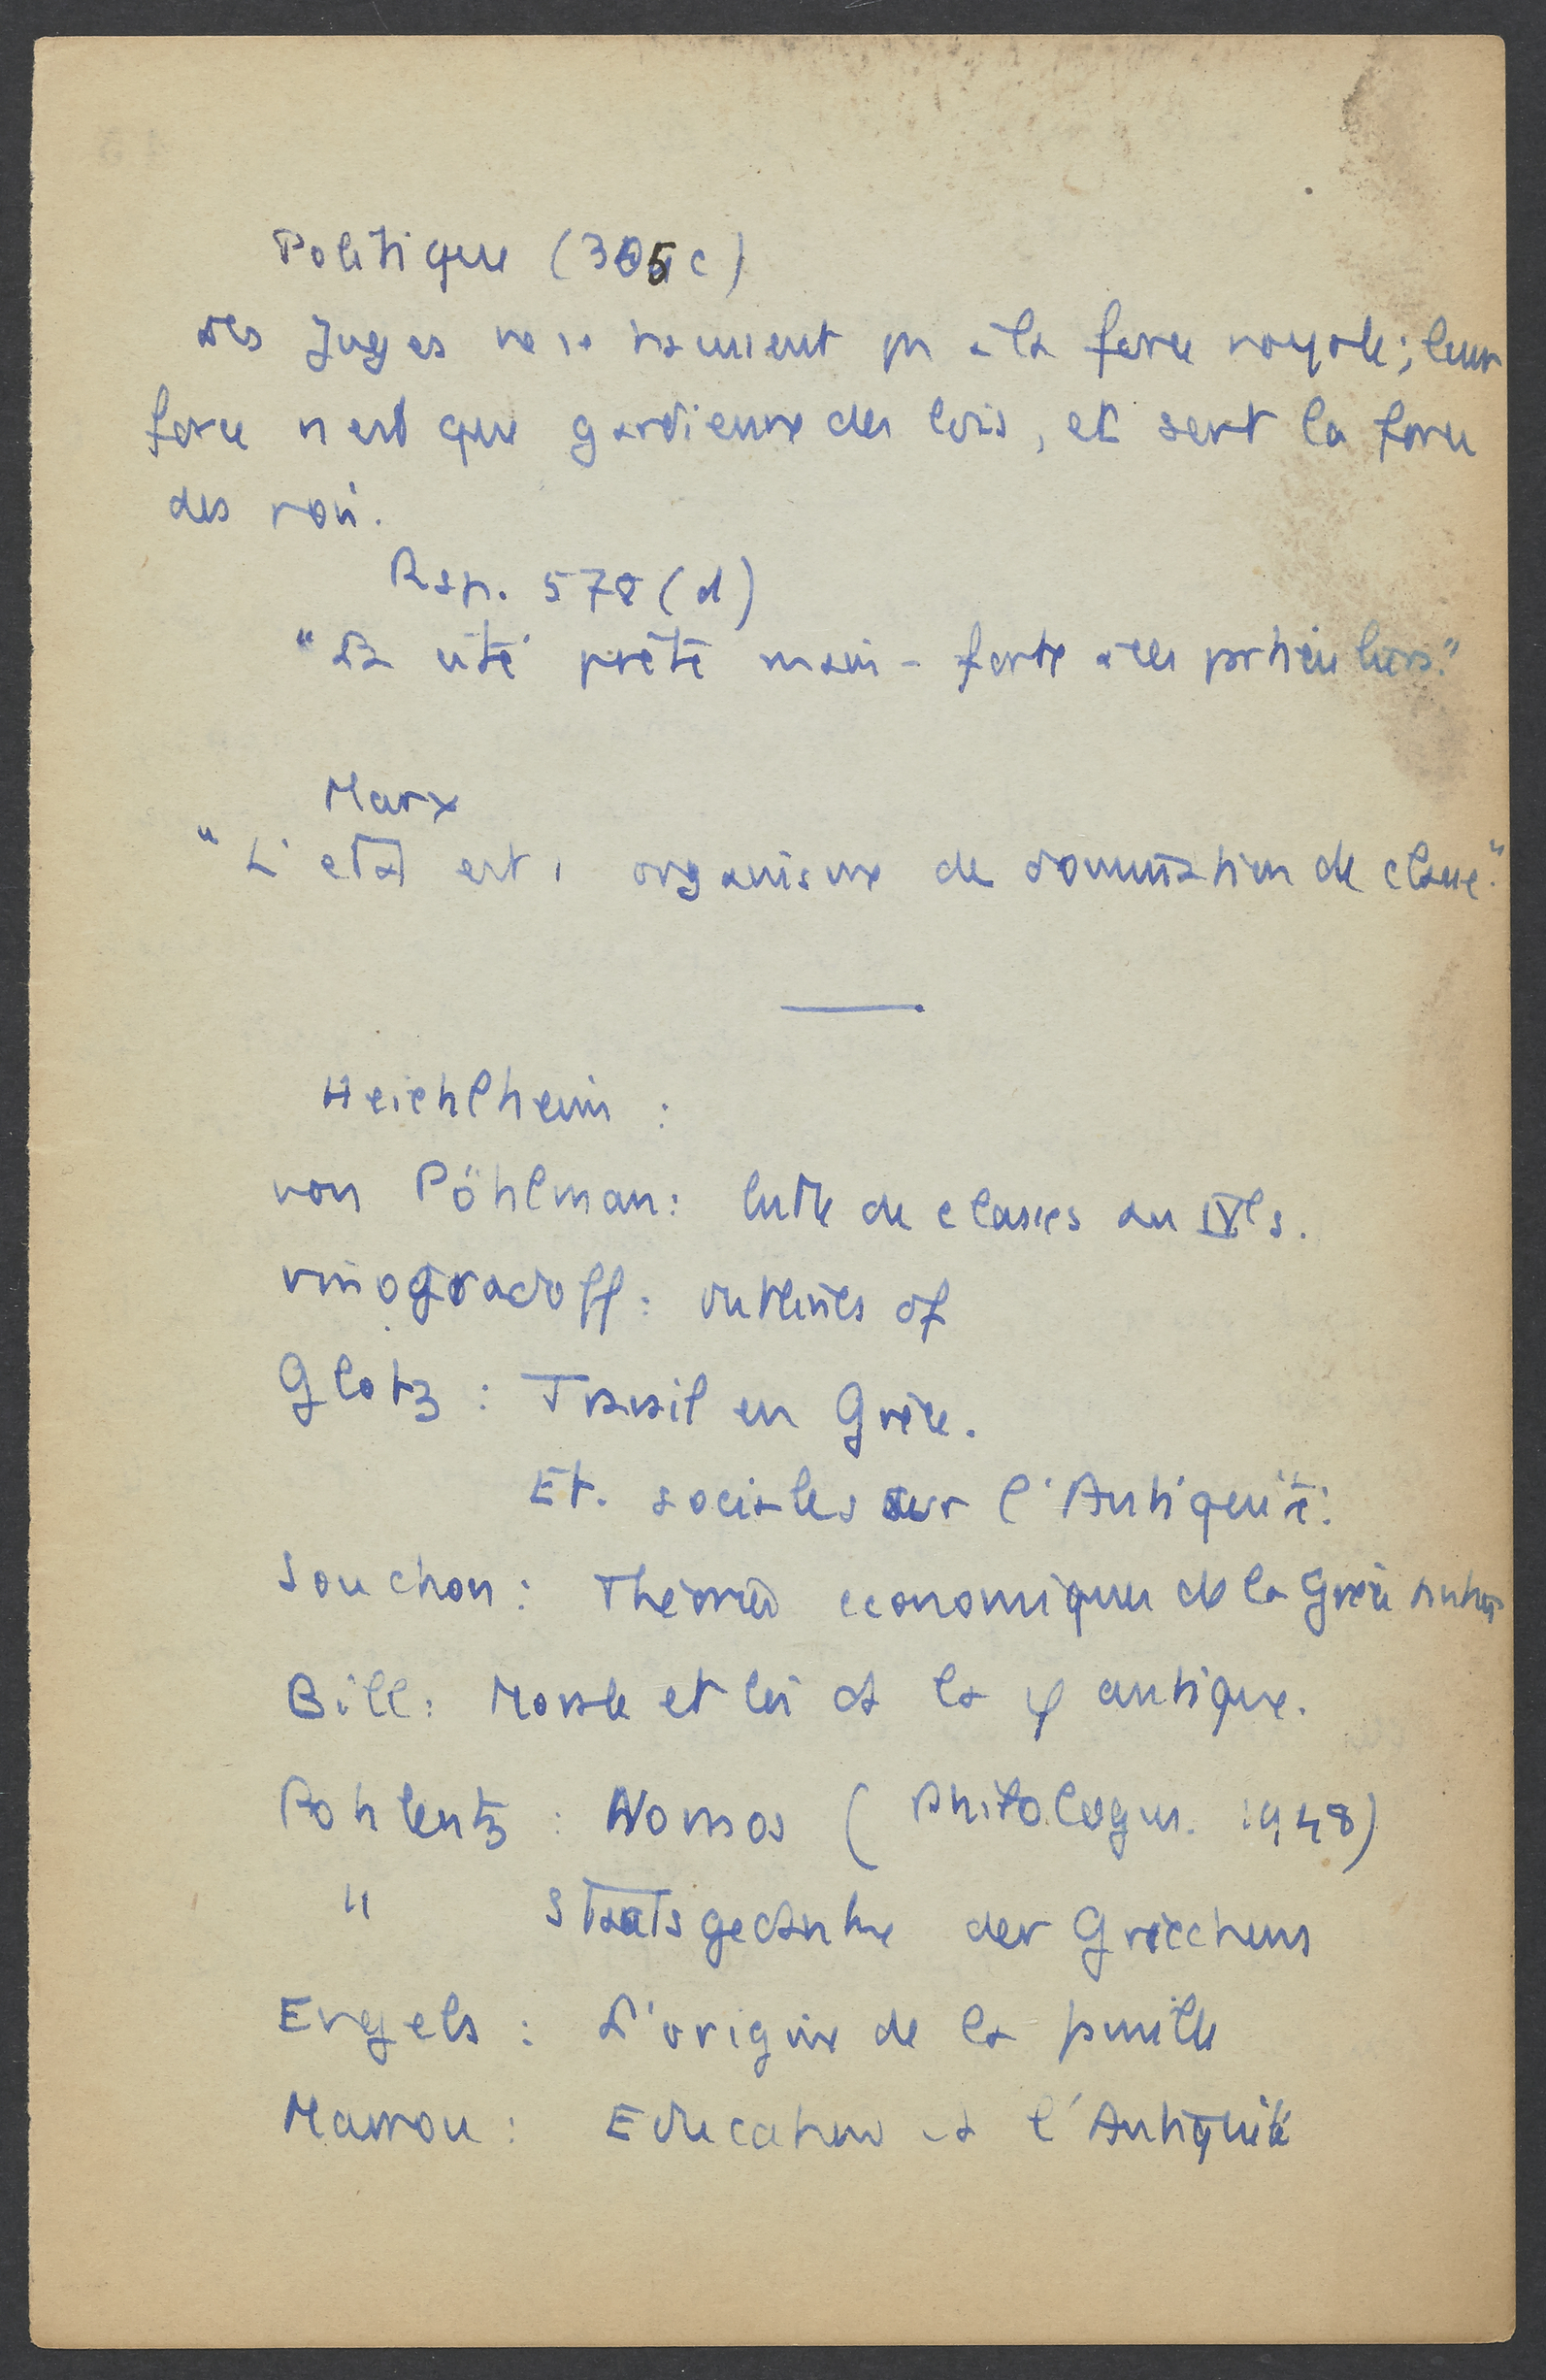 Politique (305 c)
Les Juges ne se haussent pas à la force royale; leur
force n'est que gardienne des lois, et sert la force
des rois.
Rep. 578 (d)
"La cité prête main-forte à ces particuliers."
Marx
"L'etat est 1 organisme de domination de classe."
Heichlheim :
von Pöhlman: lutte de classes au IVe s.
vinogradoff: outlines of
Glotz : Travail en Grèce.
Et. sociales sur l'Antiquité.
Souchon : Théories economiques de la Grèce antiq
Bill: Morale et loi ds la φ antique.
Pohlentz : Nomos (Philologus. 1948)
" Staatsgedanke der Griechens
Engels : L'origine de la famille
Marrou : Education ds l'Antiquité